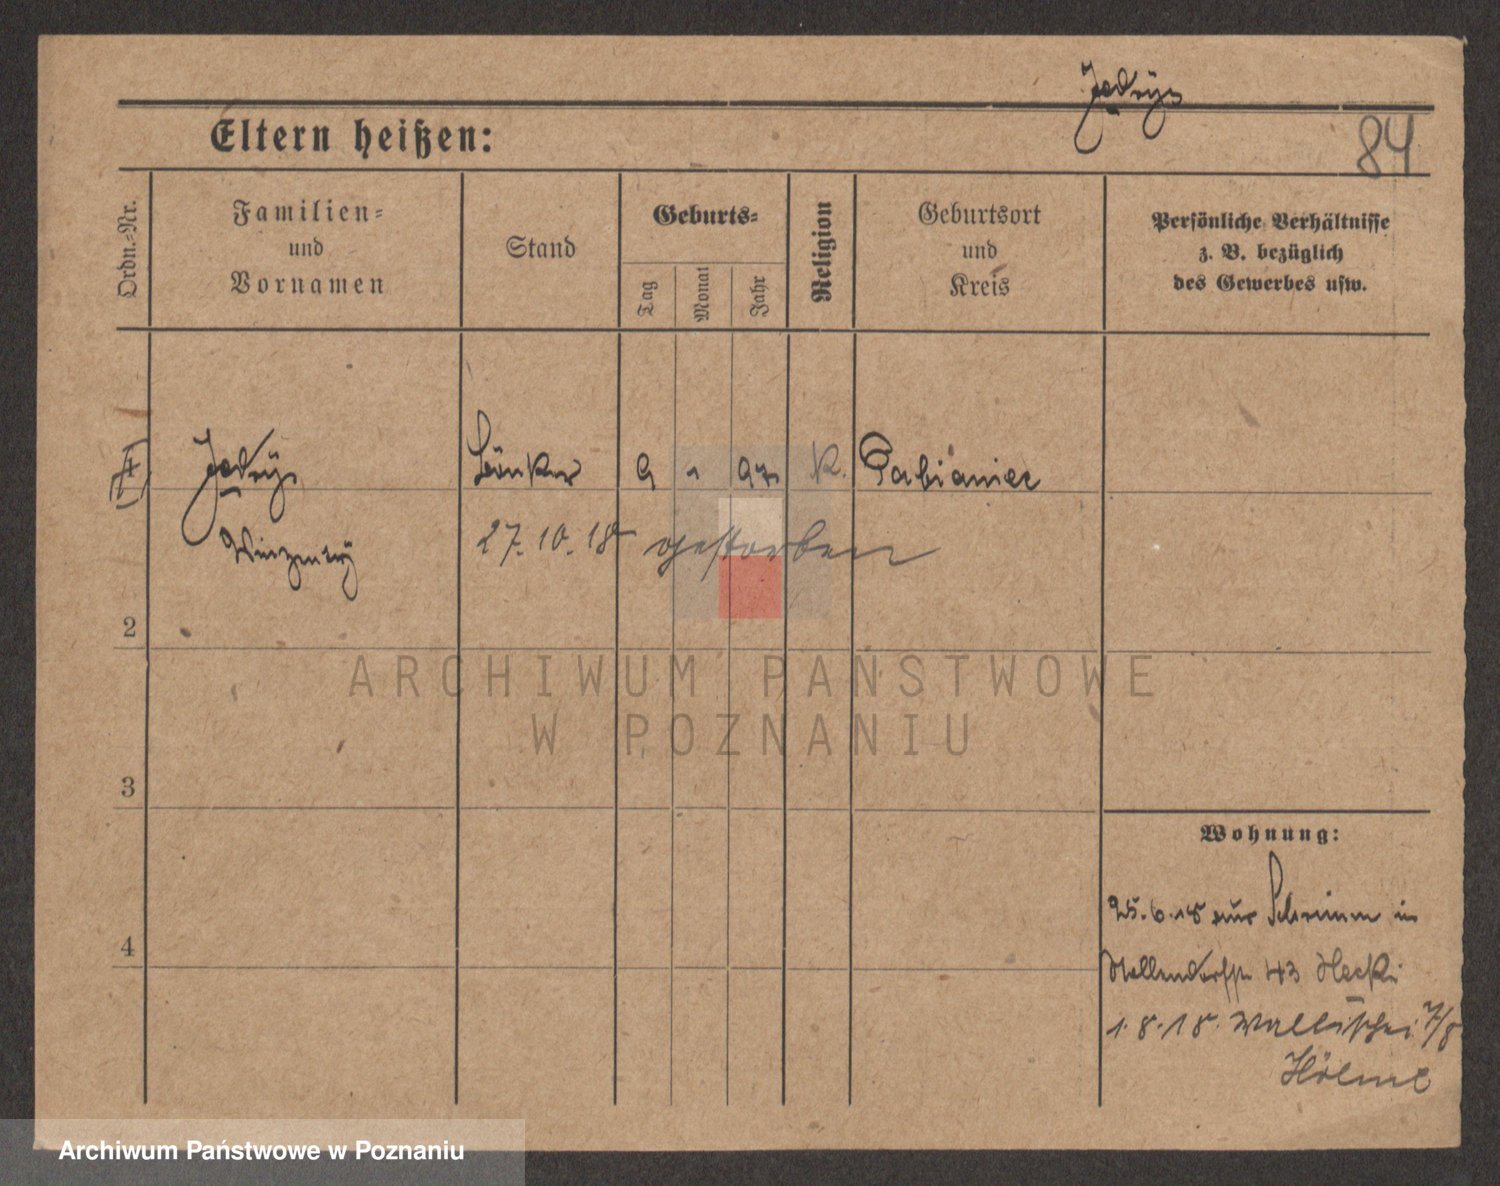 Jedrÿs
84
Eltern heißen:
Ordn.-Nr.
Familien-
und
Vornamen
Stand
Geburts-
Tag
Monat
Jahr
Religion
Geburtsort
und
Kreis
Persönliche Verhältnisse
z. B. bezüglich
des Gewerbes usw.
Jedrÿs 9 1 97 K. Pabianice
27.10.18 gestorben
2
3
4
ARCHIWUM PAŃSTWOWE
W POZNANIU
Wohnung:
25.6.18 aus Schrimm in
43
1.8.18. Wallischei 7/8
Archiwum Państwowe w Poznaniu